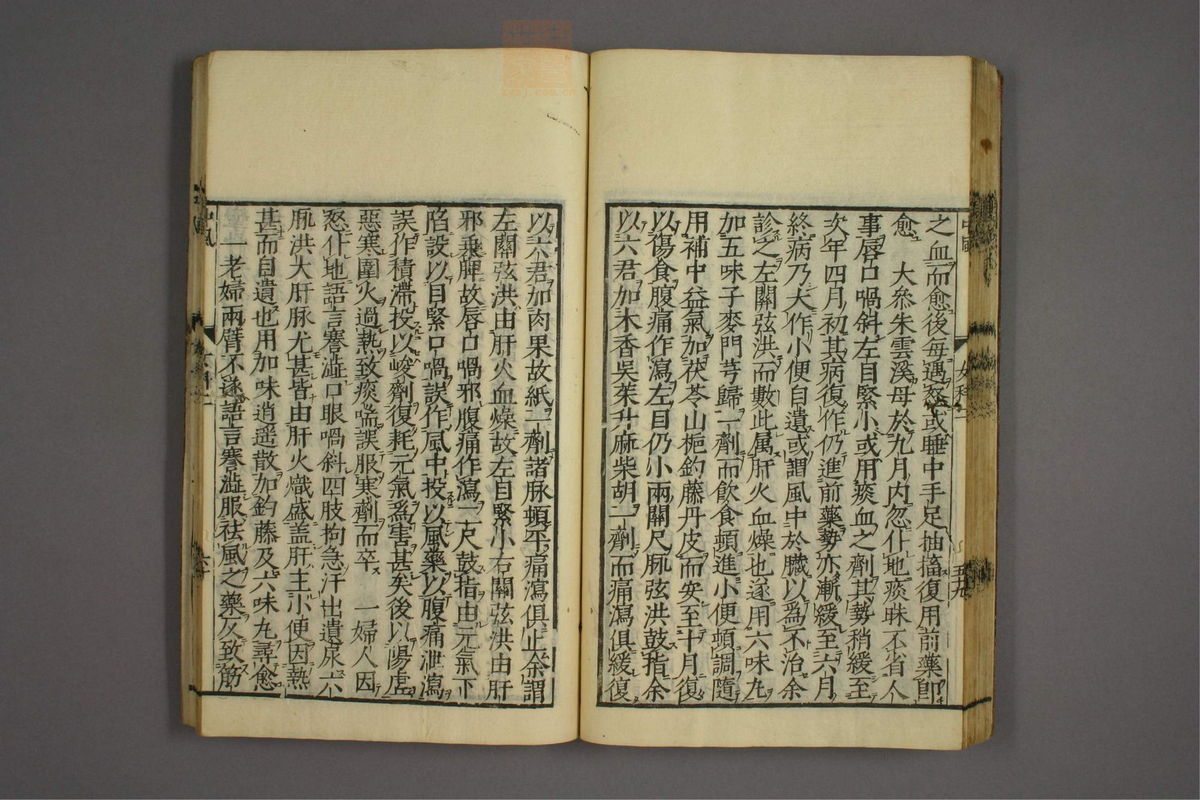 之血而愈後每遇怒或睡中手足抽搐復用前藥即
愈　大參朱雲溪母於九月内忽仆地痰昧不省人
事唇口喎斜左目緊小或用痰血之劑其勢稍緩至
次年四月初其病復作仍進前藥勢亦漸緩至六月
終病乃大作小便自遺或謂風中於臟以為不治余
診之左關弦洪而數此属肝火血燥也遂用六味丸
加五味子麥門芎歸一劑而飲食頓進小便頓調隨
用補中益氣加茯苓山梔釣藤丹皮而安至十月復
以傷食腹痛作瀉左目仍小兩關尺脉弦洪鼓指余
以六君加木香吳茱升麻柴胡一劑而痛瀉俱緩復
以六君加肉果故紙二劑諸脉頓平痛瀉俱止余謂
左關弦洪由肝火血燥故左目緊小右關弦洪由肝
邪乘脾故唇口喎邪腹痛作瀉二尺鼓指由元氣下
陷設以目緊口喎誤作風中投以風藥以腹痛泄瀉
誤作積滯投以峻劑復耗元氣為害甚矣後以陽虛
惡寒圍火過熱致痰喘誤服寒劑而卒　一婦人因
怒仆地語言謇澁口眼喎斜四肢拘急汗出遺尿六
脉洪大肝脉尤甚皆由肝火熾盛盖肝主小便因熱
甚而自遺也用加味逍遥散加釣藤及六味丸尋愈
一老婦兩臂不遂語言謇澁服祛風之藥反致筋